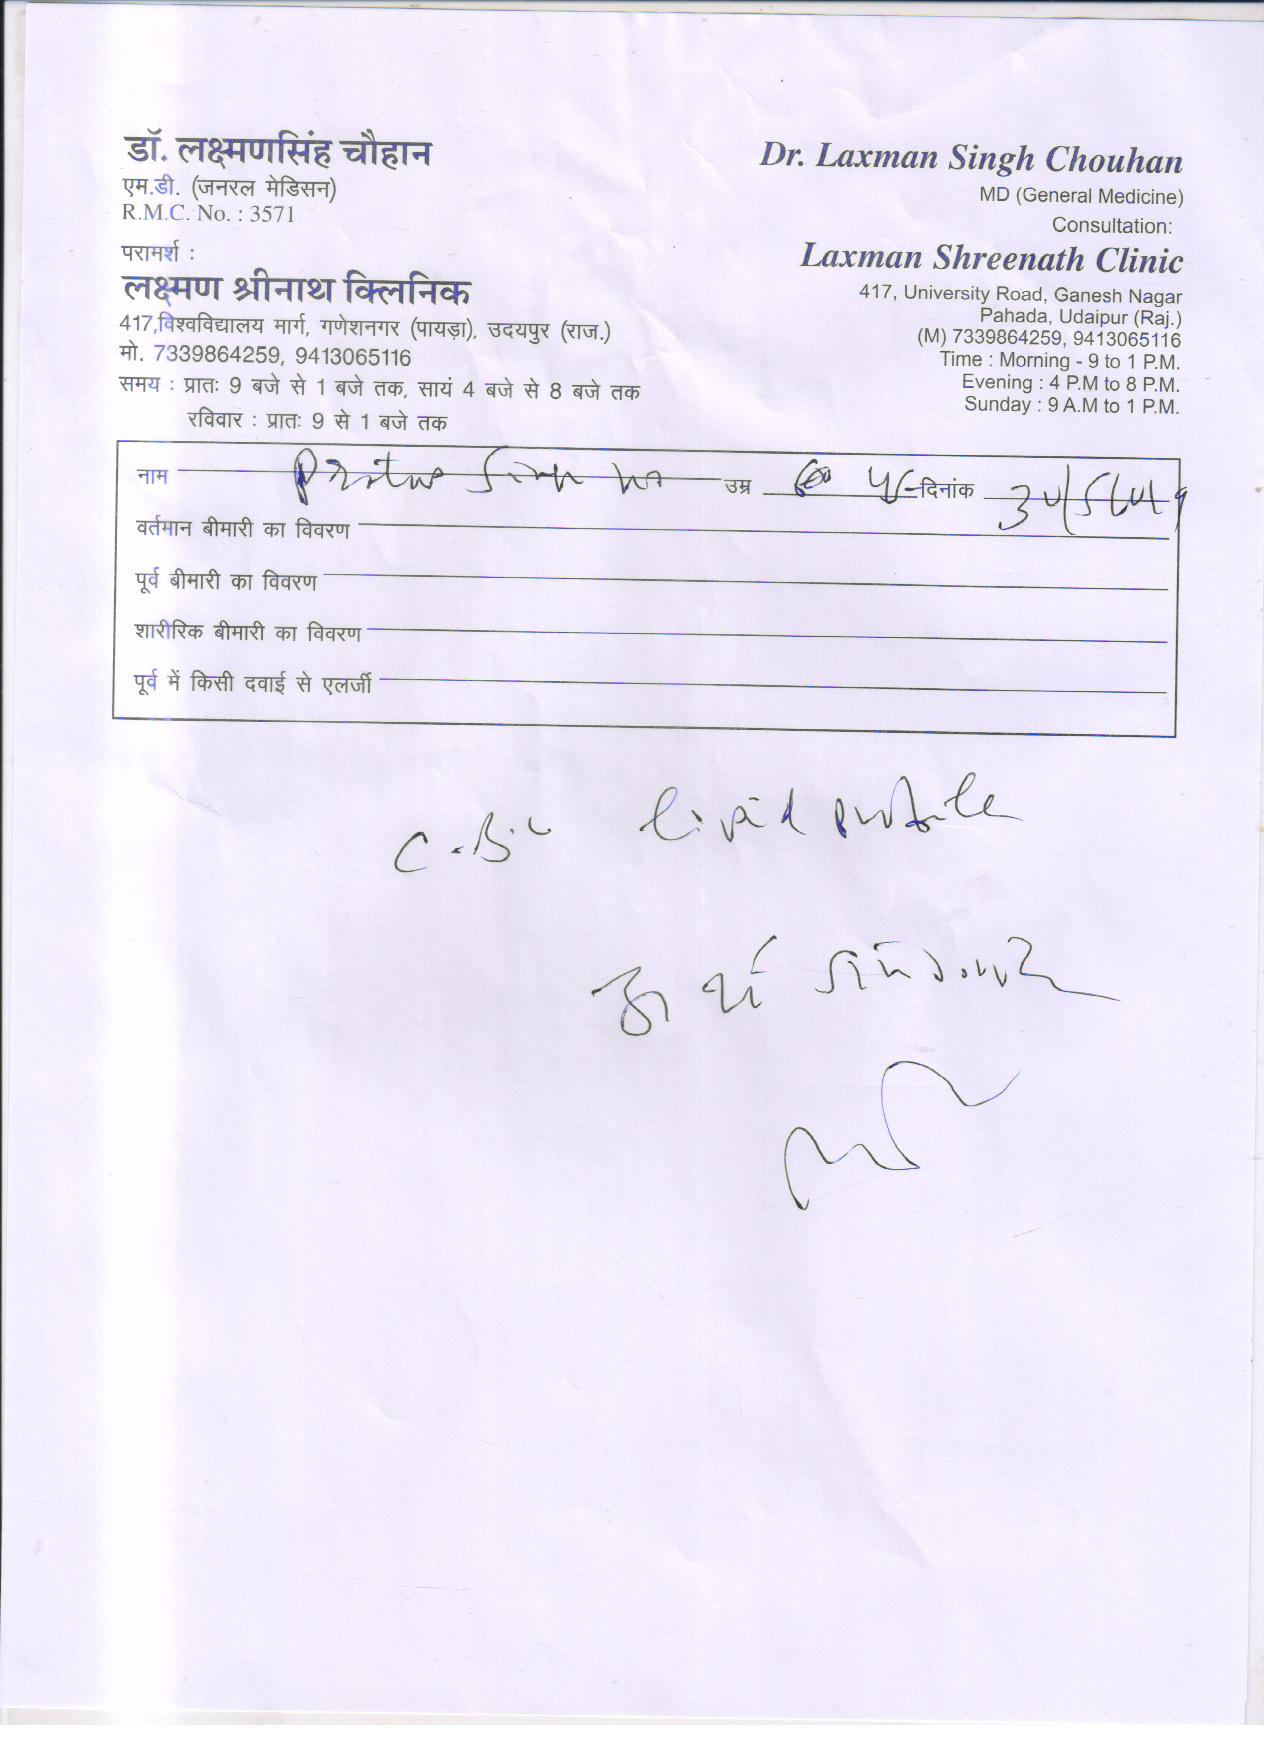 डॉ. लक्ष्मणसिंह चौहान
एम.डी. (जनरल मेडिसन)
R.M.C. No. : 3571
परामर्श :
लक्ष्मण श्रीनाथ क्लिनिक
417,विश्वविद्यालय मार्ग, गणेशनगर (पायड़ा), उदयपुर (राज.)
मो. 7339864259, 9413065116
समय : प्रातः 9 बजे से 1 बजे तक, सायं 4 बजे से 8 बजे तक
रविवार : प्रातः 9 से 1 बजे तक
Dr. Laxman Singh Chouhan
MD (General Medicine)
Consultation:
Laxman Shreenath Clinic
417, University Road, Ganesh Nagar
Pahada, Udaipur (Raj.)
(M) 7339864259, 9413065116
Time : Morning - 9 to 1 P.M.
Evening : 4 P.M to 8 P.M.
Sunday : 9 A.M to 1 P.M.
नाम उम्र दिनांक
वर्तमान बीमारी का विवरण
पूर्व बीमारी का विवरण
शारीरिक बीमारी का विवरण
पूर्व में किसी दवाई से एलर्जी
C.B.C lipid profile